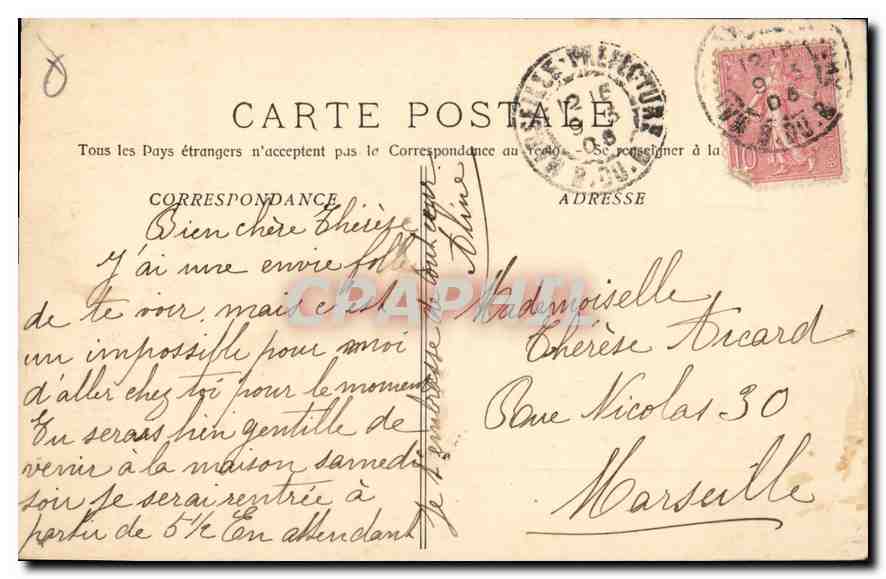 CARTE POSTALE
Tous les Pays étrangers n'acceptent pas la Correspondance au recto. Se renseigner à la
CORRESPONDANCE
Bien chère Thérèse
J'ai une envie folle
de te voir, mais c'est
un impossible pour moi
d'aller chez toi pour le moment
Tu serais bien gentille de
venir à la maison samedi
soir je serai rentrée à
partir de 5 1/2 En attendant
je t'embrasse de tout cœur
Aline
ADRESSE
Mademoiselle
Thérèse Aicard
Rue Nicolas 30
Marseille
MARSEILLE-PREFECTURE
B. DU. R.
10
CPAPHIL